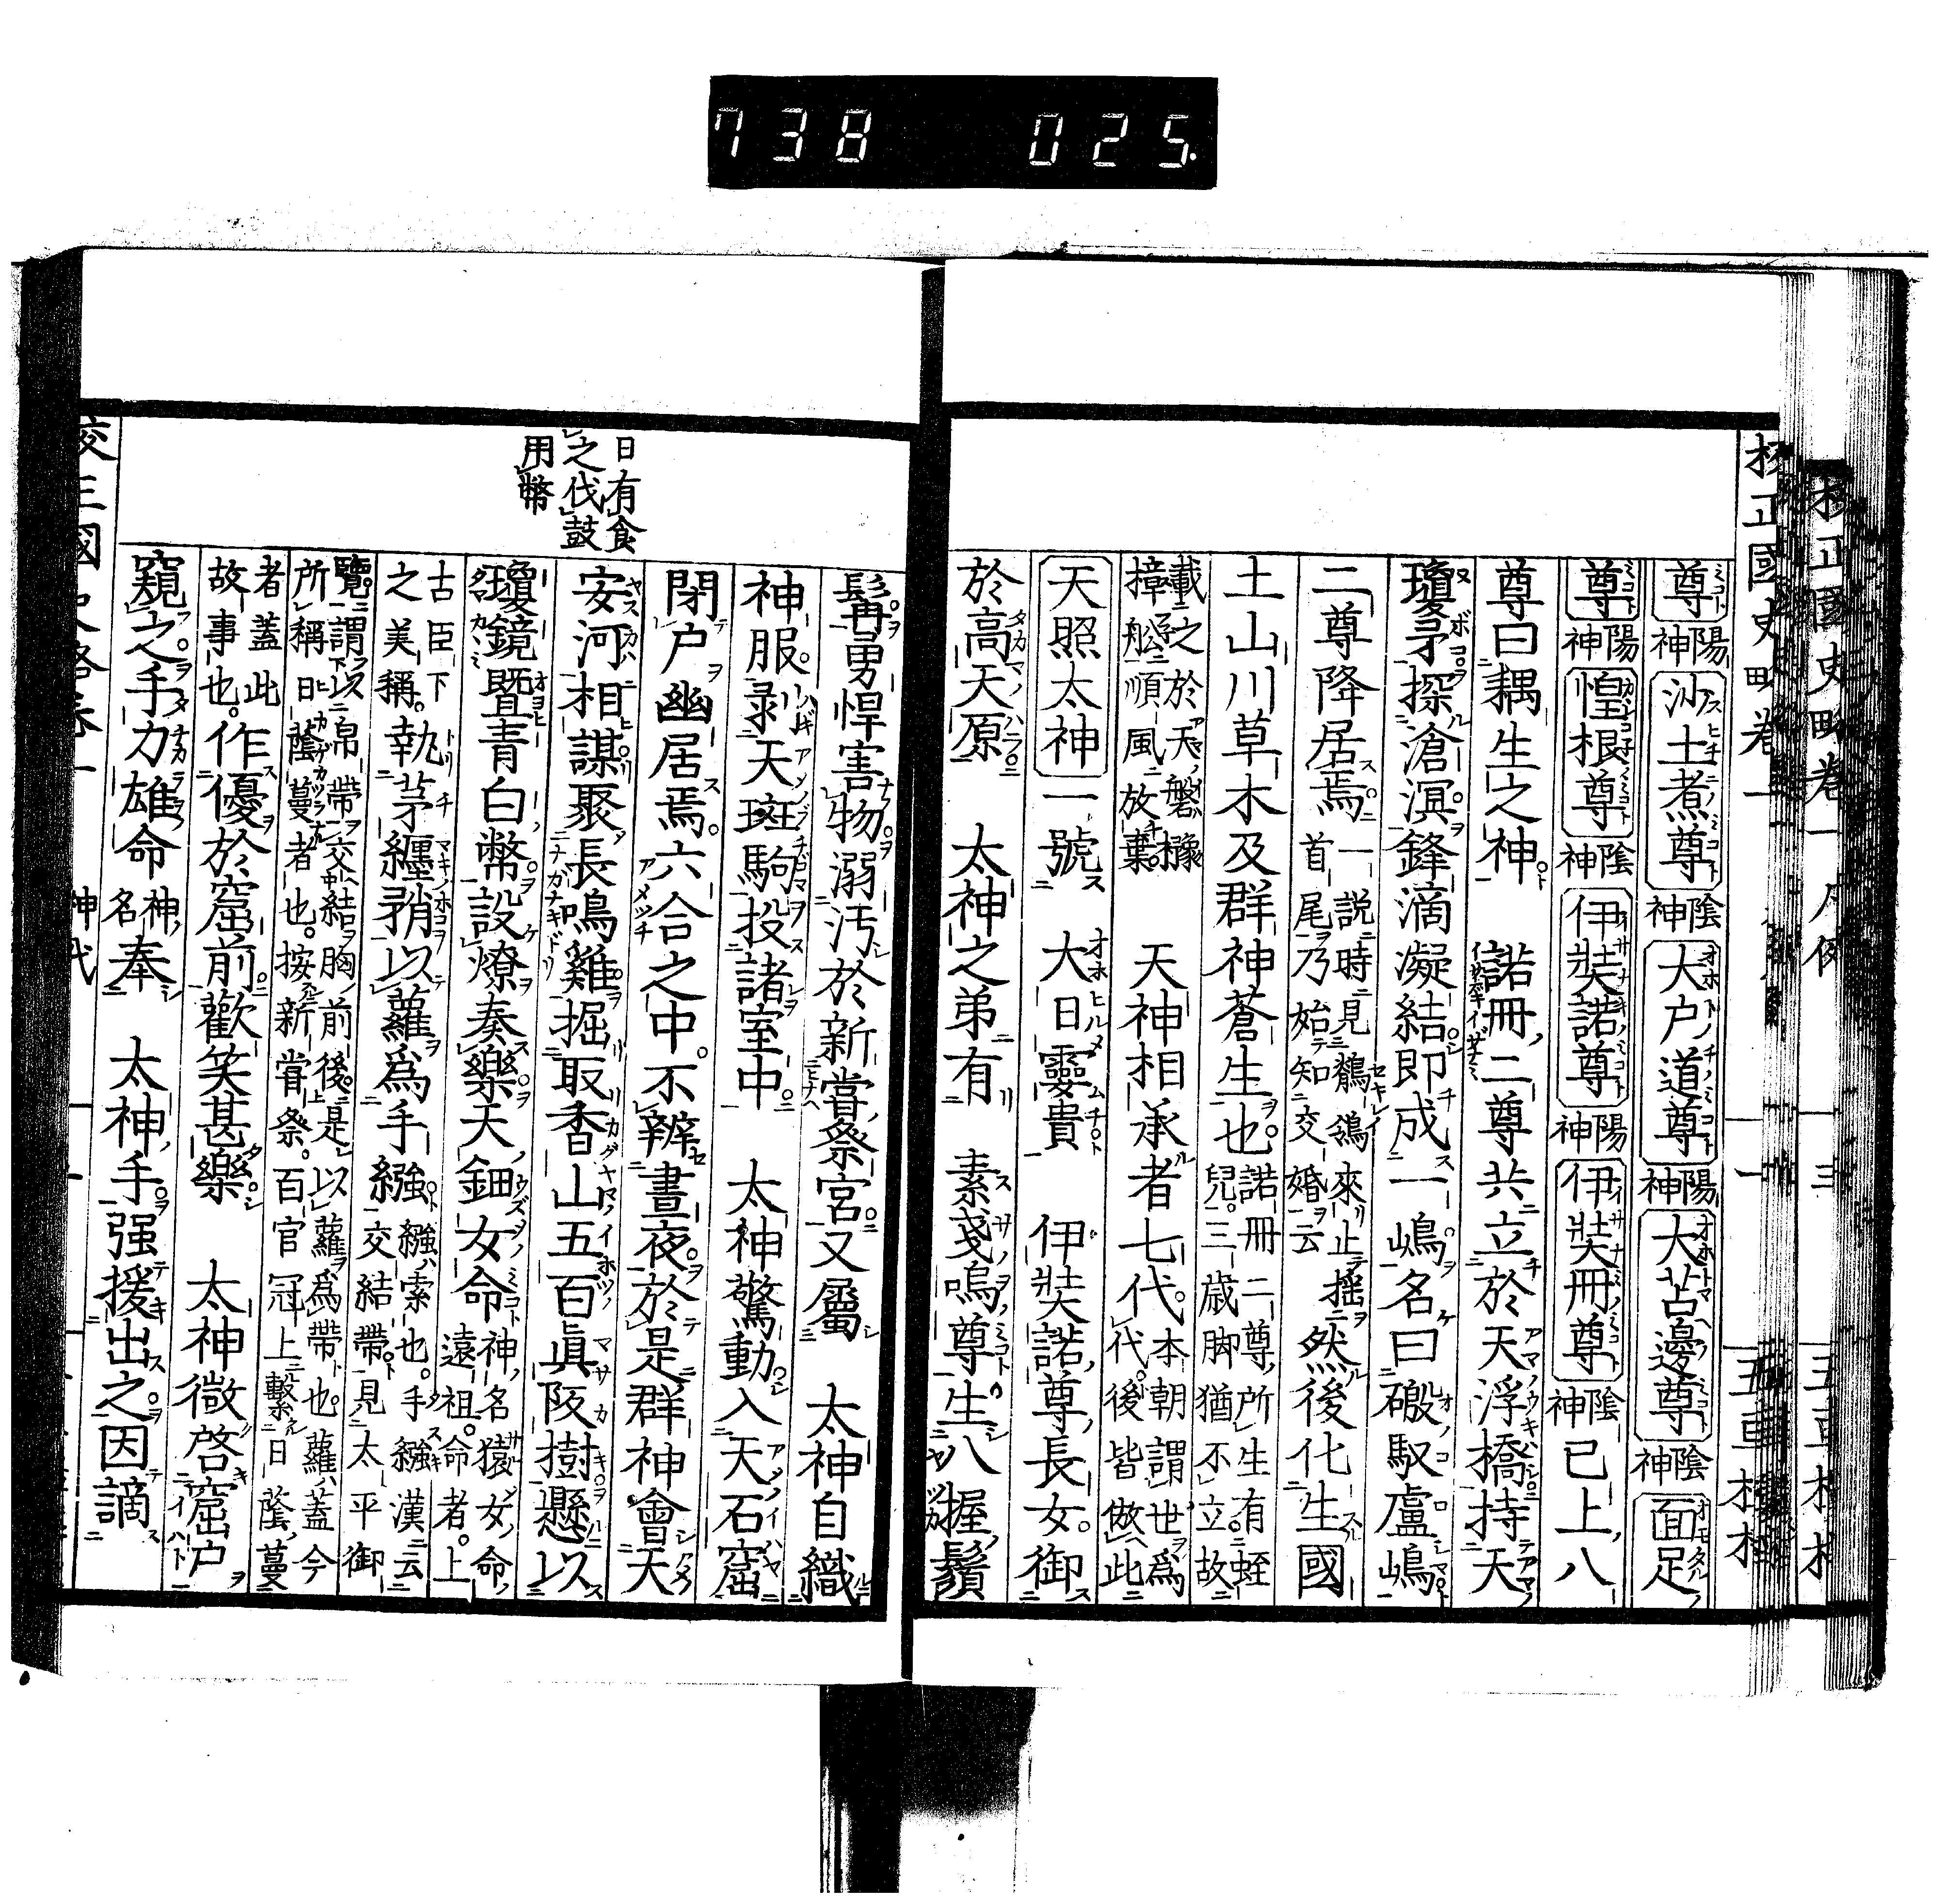 738 025.
校正國史畧卷一
尊陽神沙土煮尊陰神大户道尊陽神大苫邊尊陰神面足
尊陽神惶根尊陰神伊弉諾尊陽神伊弉冊尊陰神已上八
尊曰耦生之神諾冊二尊共立於天浮橋持天
瓊矛探滄溟鋒滴凝結即成一嶋名曰磤馭盧嶋
二尊降居焉一説時見鶺鴒來止搖首尾乃始知交婚云然後化生國
土山川草木及群神蒼生也諾冊二尊所生有蛭兒三歳脚猶不立故
載之於天磐櫲樟舩順風放棄天神相承者七代本朝謂世爲代後皆倣此
天照太神一號大日孁貴伊弉諾尊長女御
於高天原太神之弟有素戔嗚尊生八握鬚
髯勇悍害物溺汚於新嘗祭宮又屬太神自織
神服剥天斑駒投諸室中太神驚動入天石窟
閉戸幽居焉六合之中不辨晝夜於是群神會天
安河相謀聚長鳴雞掘取香山五百眞阪樹懸以
瓊鏡曁青白幣設燎奏樂天鈿女命神名猿女命遠祖命者上
古臣下之美稱執茅纏矟以蘿爲手繦繦索也手繦漢云交結帶見太平御
覽謂以帛帶交結胸前後是以蘿爲帶也蘿蓋今所稱日蔭蔓者也按新嘗祭百官冠上繫日蔭蔓
者蓋此故事也作優於窟前歡笑甚樂太神微啓窟戸
窺之手力雄命神名奉太神手强援出之因謫
日有食
之伐鼓
用幣
神代